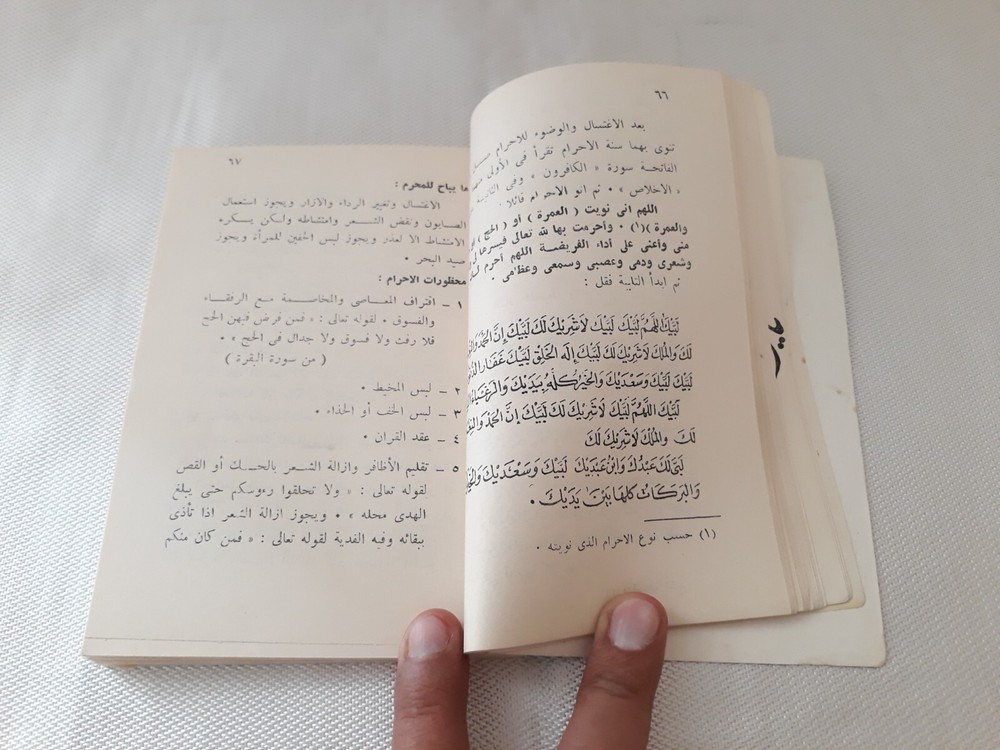 ٦٦
بعد الاغتسال والوضوء للاحرام
تنوى بهما سنة الاحرام تقرأ فى الأولى
الفاتحة سورة « الكافرون » وفى الثانية
« الاخلاص » . ثم انو الاحرام قائلا
اللهم انى نويت ( العمرة ) أو ( الحج )
والعمرة )(١) . وأحرمت بها لله تعالى فيسرها
منى وأعنى على أداء الفريضة اللهم أحرم
وشعرى ودمى وعصبى وسمعى وعظامى .
ثم ابدأ التلبية فقل :
لَبَّيْكَ اللَّهُمَّ لَبَّيْكَ لَبَّيْكَ لَا شَرِيكَ لَكَ لَبَّيْكَ إِنَّ الْحَمْدَ
لَكَ وَالْمُلْكَ لَا شَرِيكَ لَكَ لَبَّيْكَ إِلَهَ الْخَلْقِ لَبَّيْكَ غَفَّارَ
لَبَّيْكَ لَبَّيْكَ وَسَعْدَيْكَ وَالْخَيْرُ كُلُّهُ بِيَدَيْكَ وَالرَّغْبَاءُ
لَبَّيْكَ اللَّهُمَّ لَبَّيْكَ لَا شَرِيكَ لَكَ لَبَّيْكَ إِنَّ الْحَمْدَ
لَكَ وَالْمُلْكَ لَا شَرِيكَ لَكَ
عَبْدُكَ وَابْنُ عَبْدَيْكَ لَبَّيْكَ وَسَعْدَيْكَ
وَالْبَرَكَاتُ كُلُّهَا بَيْنَ يَدَيْكَ .
(١) حسب نوع الاحرام الذى نويته .
٦٧
ما يباح للمحرم :
الاغتسال وتغيير الرداء والازار ويجوز استعمال
الصابون ونقض الشعر وامتشاطه ولكن يكره
الامتشاط الا لعذر ويجوز لبس الخفين للمرأة ويجوز
صيد البحر .
محظورات الاحرام :
١ ـ اقتراف المعاصى والمخاصمة مع الرفقاء
والفسوق . لقوله تعالى : « فمن فرض فيهن الحج
فلا رفث ولا فسوق ولا جدال فى الحج » .
( من سورة البقرة )
٢ ـ لبس المخيط .
٣ ـ لبس الخف أو الحذاء .
٤ ـ عقد القران .
٥ ـ تقليم الأظافر وازالة الشعر بالحلق أو القص
لقوله تعالى : « ولا تحلقوا رءوسكم حتى يبلغ
الهدى محله » . ويجوز ازالة الشعر اذا تأذى
ببقائه وفيه الفدية لقوله تعالى : « فمن كان منكم